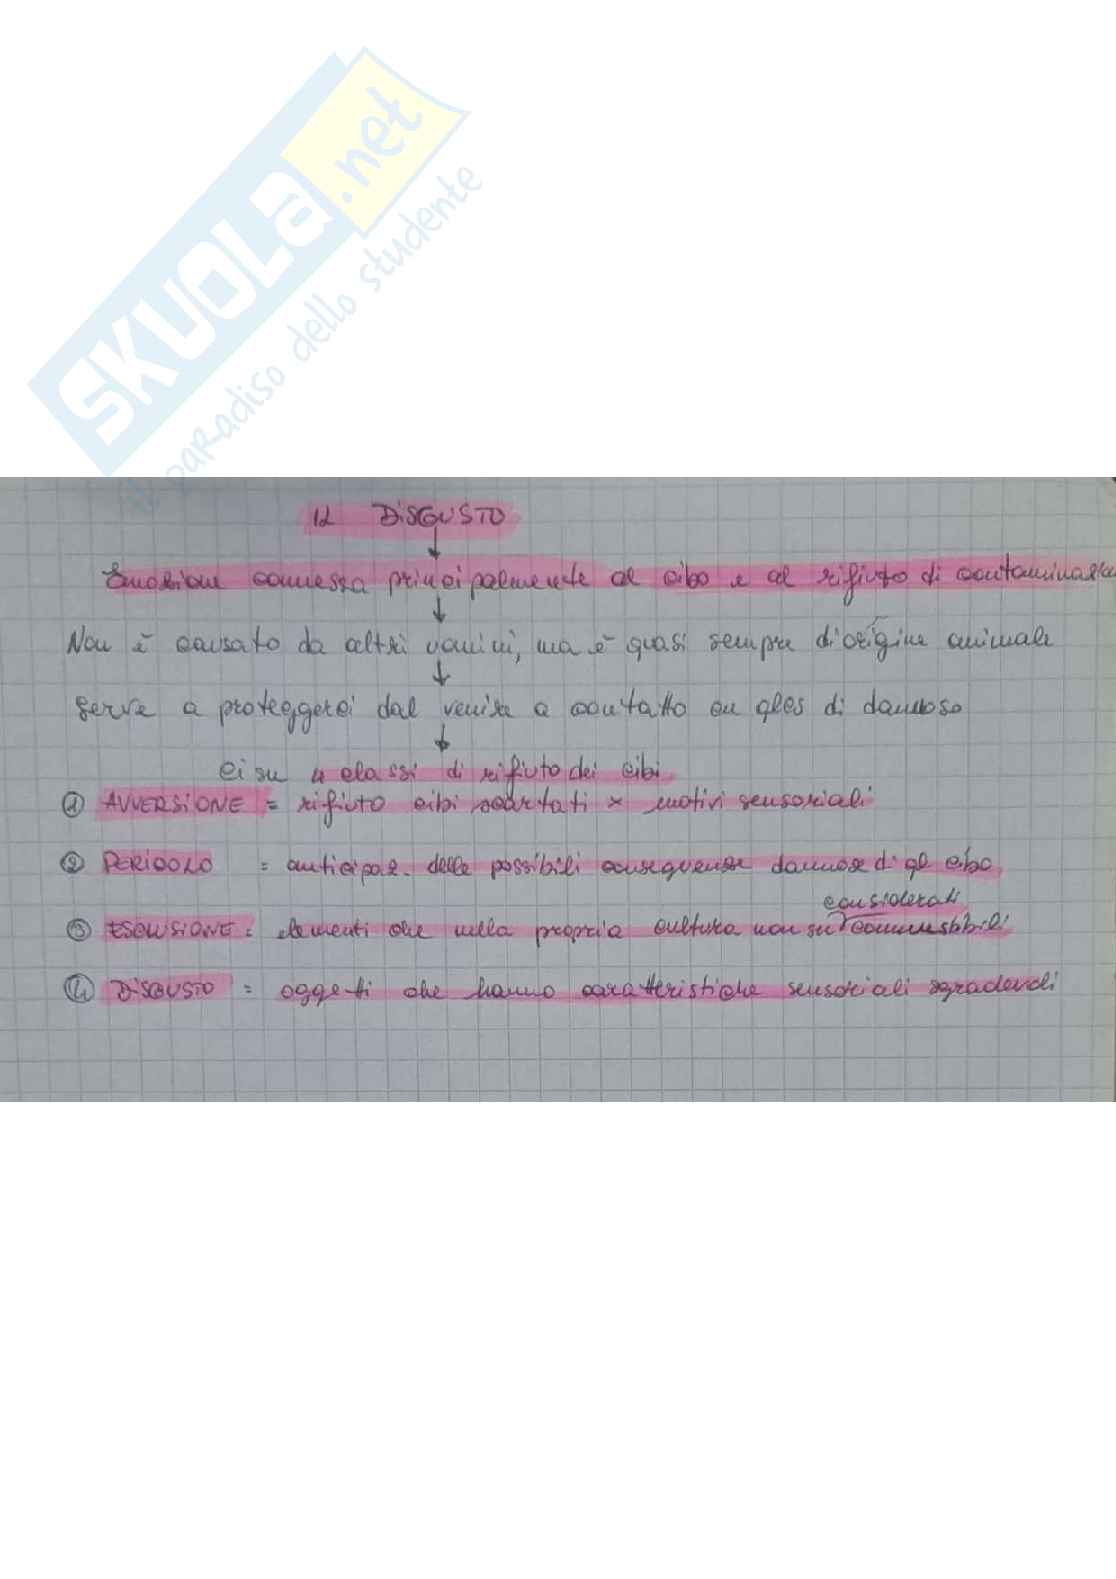 SKUOLA.net
il paradiso dello studente
Il DISGUSTO
Emozione connessa principalmente al cibo e al rifiuto di
Non è causato da altri uomini, ma è quasi sempre di origine animale
serve a proteggerci dal venire a contatto cn qlcs di dannoso
Ci sn 4 classi di rifiuto dei cibi
① AVVERSIONE = rifiuto cibi scartati x motivi sensoriali
② PERICOLO = anticipaz. delle possibili conseguenze dannose di ql cibo
considerati
③ ESCLUSIONE = elementi che nella propria cultura non sn commestibili
④ DISGUSTO = oggetti che hanno caratteristiche sensoriali sgradevoli